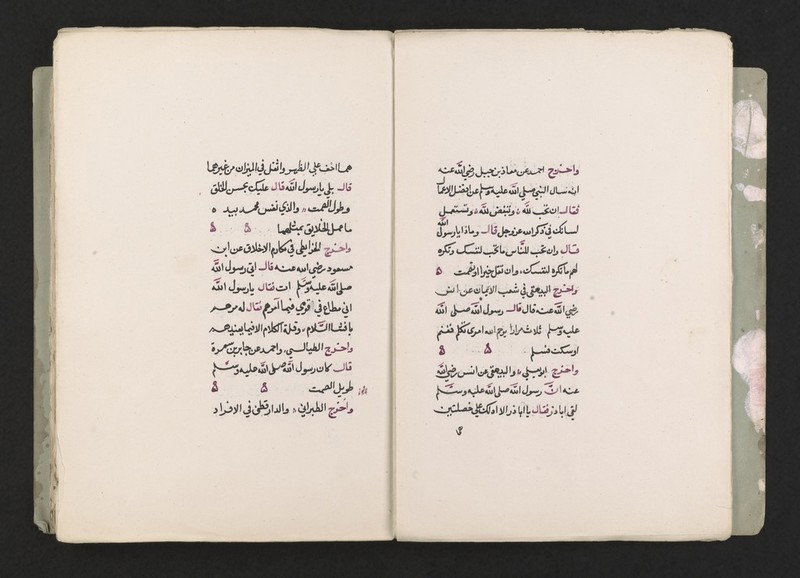 واخرج احمد عن معاذ بن جبل رضي الله عنه
انه سال النبي صلي الله عليه وسلم عن افضل الاعمال
فقال ان تحب لله وتبغض لله وتستعمل
لسانك في ذكر الله عز وجل قال وماذا يا رسول الله
قال وان تحب للناس ما تحب لنفسك وتكره
لهم ما تكره لنفسك وان تقل خيرا او تصمت ه
واخرج البيهقي في شعب الايمان عن انس
رضي الله عنه قال قال رسول الله صلي الله
عليه وسلم ثلاث مرارا يرحم الله امرئ تكلم فغنم
او سكت فسلم ه ه
واخرج ابو يعلي والبيهقي عن انس رضي الله
عنه ان رسول الله صلي الله عليه وسلم
لقي اباذر فقال يا اباذر الا ادلك علي خصلتين
هما اخف علي الظهر واثقل في الميزان من غيرهما
قال بلي يا رسول الله قال عليك بحسن الخلق
وطول الصمت والذي نفس محمد بيده
ما عمل الخلايق بمثلهما ه ه
واخرج الخرايطي في مكارم الاخلاق عن ابن
مسعود رضي الله عنه قال اتي رسول الله
صلي الله عليه وسلم ات فقال يا رسول الله
اني مطاع في قومي فيما آمرهم فقال له مرهم
بافشا السلام وقلة الكلام الا فيما يعنيهم
واخرج الطيالسي واحمد عن جابر بن سمرة
قال كان رسول الله صلي الله عليه وسلم
طويل الصمت ه ه
واخرج الطبراني والدارقطني في الافراد